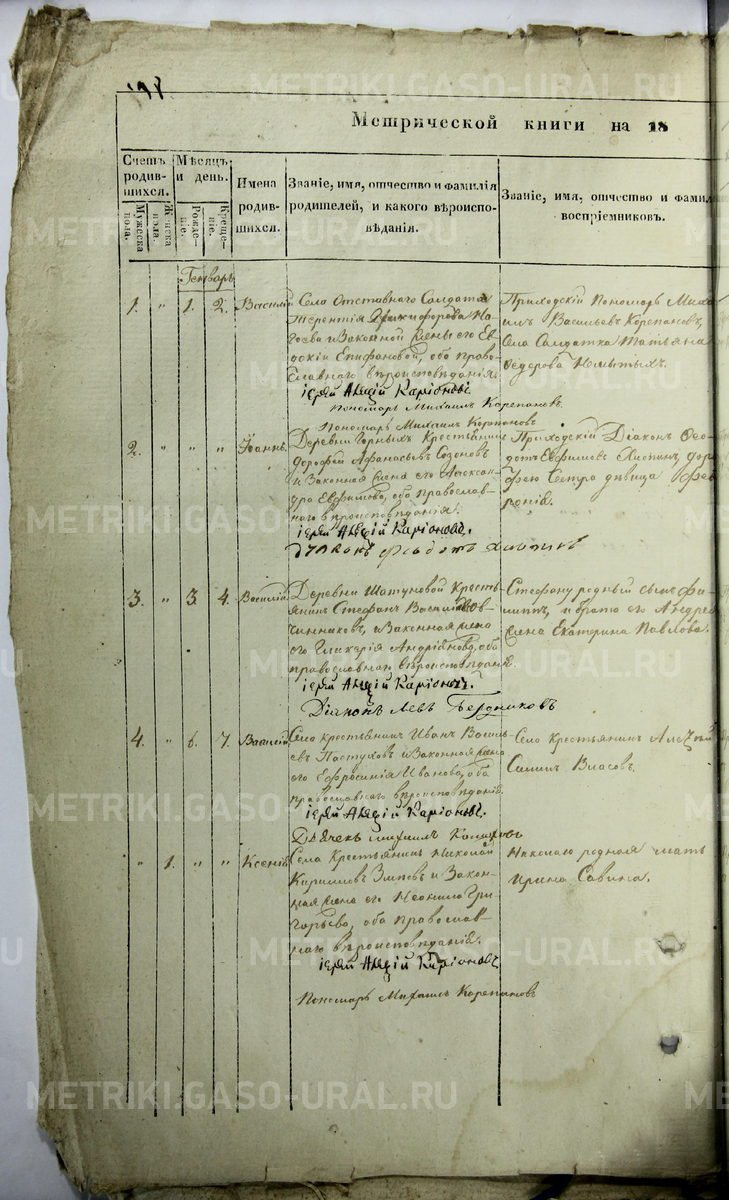 Метрической книги на 18
Счетъ родив-шихся.
Мужеска пола.
Женска пола.
Мѣсяцъ и день.
Рожде-ніе.
Креще-ніе.
Имена родив-шихся.
Званіе, имя, отчество и фамилія
родителей, и какого вѣроиспо-
вѣданія.
Званіе, имя, отчество и фамил
воспріемниковъ.
Генварь
1. „ 1. 2. Василій
Села Отставнаго Солдата
Терентія Никифорова
и Законной жены его Ев-
докіи Епифановой, оба право-
славнаго вѣроисповѣданія.
іерей Алеѯій Каріоновъ.
Пономарь Михаилъ Корепановъ.
Приходскій Пономарь Миха-
илъ Васильевъ Корепановъ,
села Солдатка Татьяна
Ѳедорова
Пономарь Михаилъ Корепановъ
2. „ „ „ Іоаннъ
Деревни Горныхъ Крестьянинъ
Дорофей Афанасьевъ Созоновъ
и Законная жена его Алексан-
дра Евфимова, оба православ-
наго вѣроисповѣданія.
іерей Алеѯій Каріоновъ.
Діаконъ Феодотъ Хлопинъ
Приходскій Діаконъ Ѳео-
дотъ Евфимовъ Хлопинъ, дор
фею сестра дѣвица Фев
ронія.
3. „ 3. 4. Василій
Деревни Шатуновой Кресть-
янинъ Стефанъ Васильевъ Ов-
чинниковъ, и Законная жена
его Гликерія Андріянова, оба
православнаго вѣроисповѣданія.
іерей Алеѯій Каріоновъ.
Діаконъ Левъ Бердниковъ
Стефану родный сынъ Фи-
липпъ, и брата его Андрея
жена Екатерина Павлова.
4. „ 6. 7. Василій
Села крестьянинъ Иванъ Василь-
евъ Пастуховъ и Законная жена
его Ефросинія Иванова, оба
православнаго вѣроисповѣданія.
іерей Алеѯій Каріоновъ.
Дьячекъ Михаилъ
Села Крестьянинъ Алеѯѣй
Власовъ.
„ 1. „ „ Ксенія
Села Крестьянинъ Николай
Кирилловъ Зыковъ и Закон-
ная жена его Неонила Гри-
горьева, оба православ-
наго вѣроисповѣданія.
іерей Алеѯій Каріоновъ
Пономарь Михаилъ Корепановъ
Николаю родная мать
Ирина Савина.
METRIKI.GASO-URAL.RU